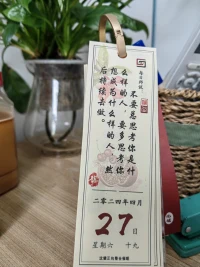 每日好报
不要总思考你是什
么样的人，要多思考你
想成为什么样的人，然
后持续去做。
二零二四年四月
27日
星期六 十九